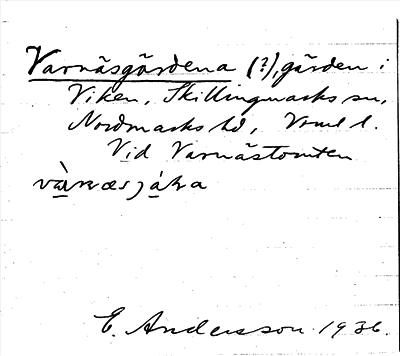 Varnäsgärdena (?), gärden i
Viken, Skillingmarks sn,
Nordmarks hd, Vrml l.
Vid Varnästomten
E. Andersson 1936.